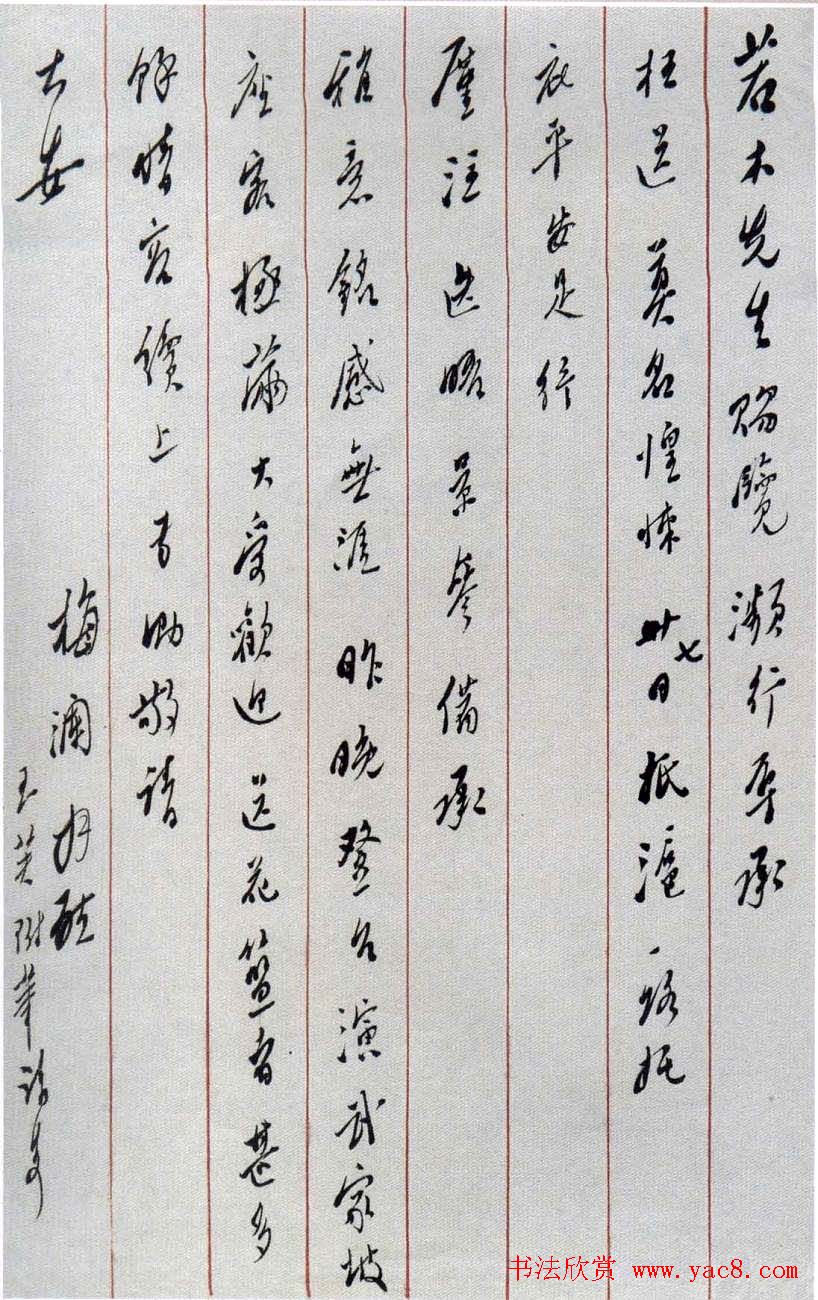 若木先生賜覽瀕行辱承
枉送莫名惶悚廿七日抵滬一路托
庇平安足紓
廑注迭晤景岑備承
雅意銘感無涯昨晚登台演武家坡
座客極滿大受歡迎送花籃者甚多
餘情容續上耑泐敬請
大安
梅瀾拜啟
玉芙附筆請安
书法欣赏 www.yac8.com